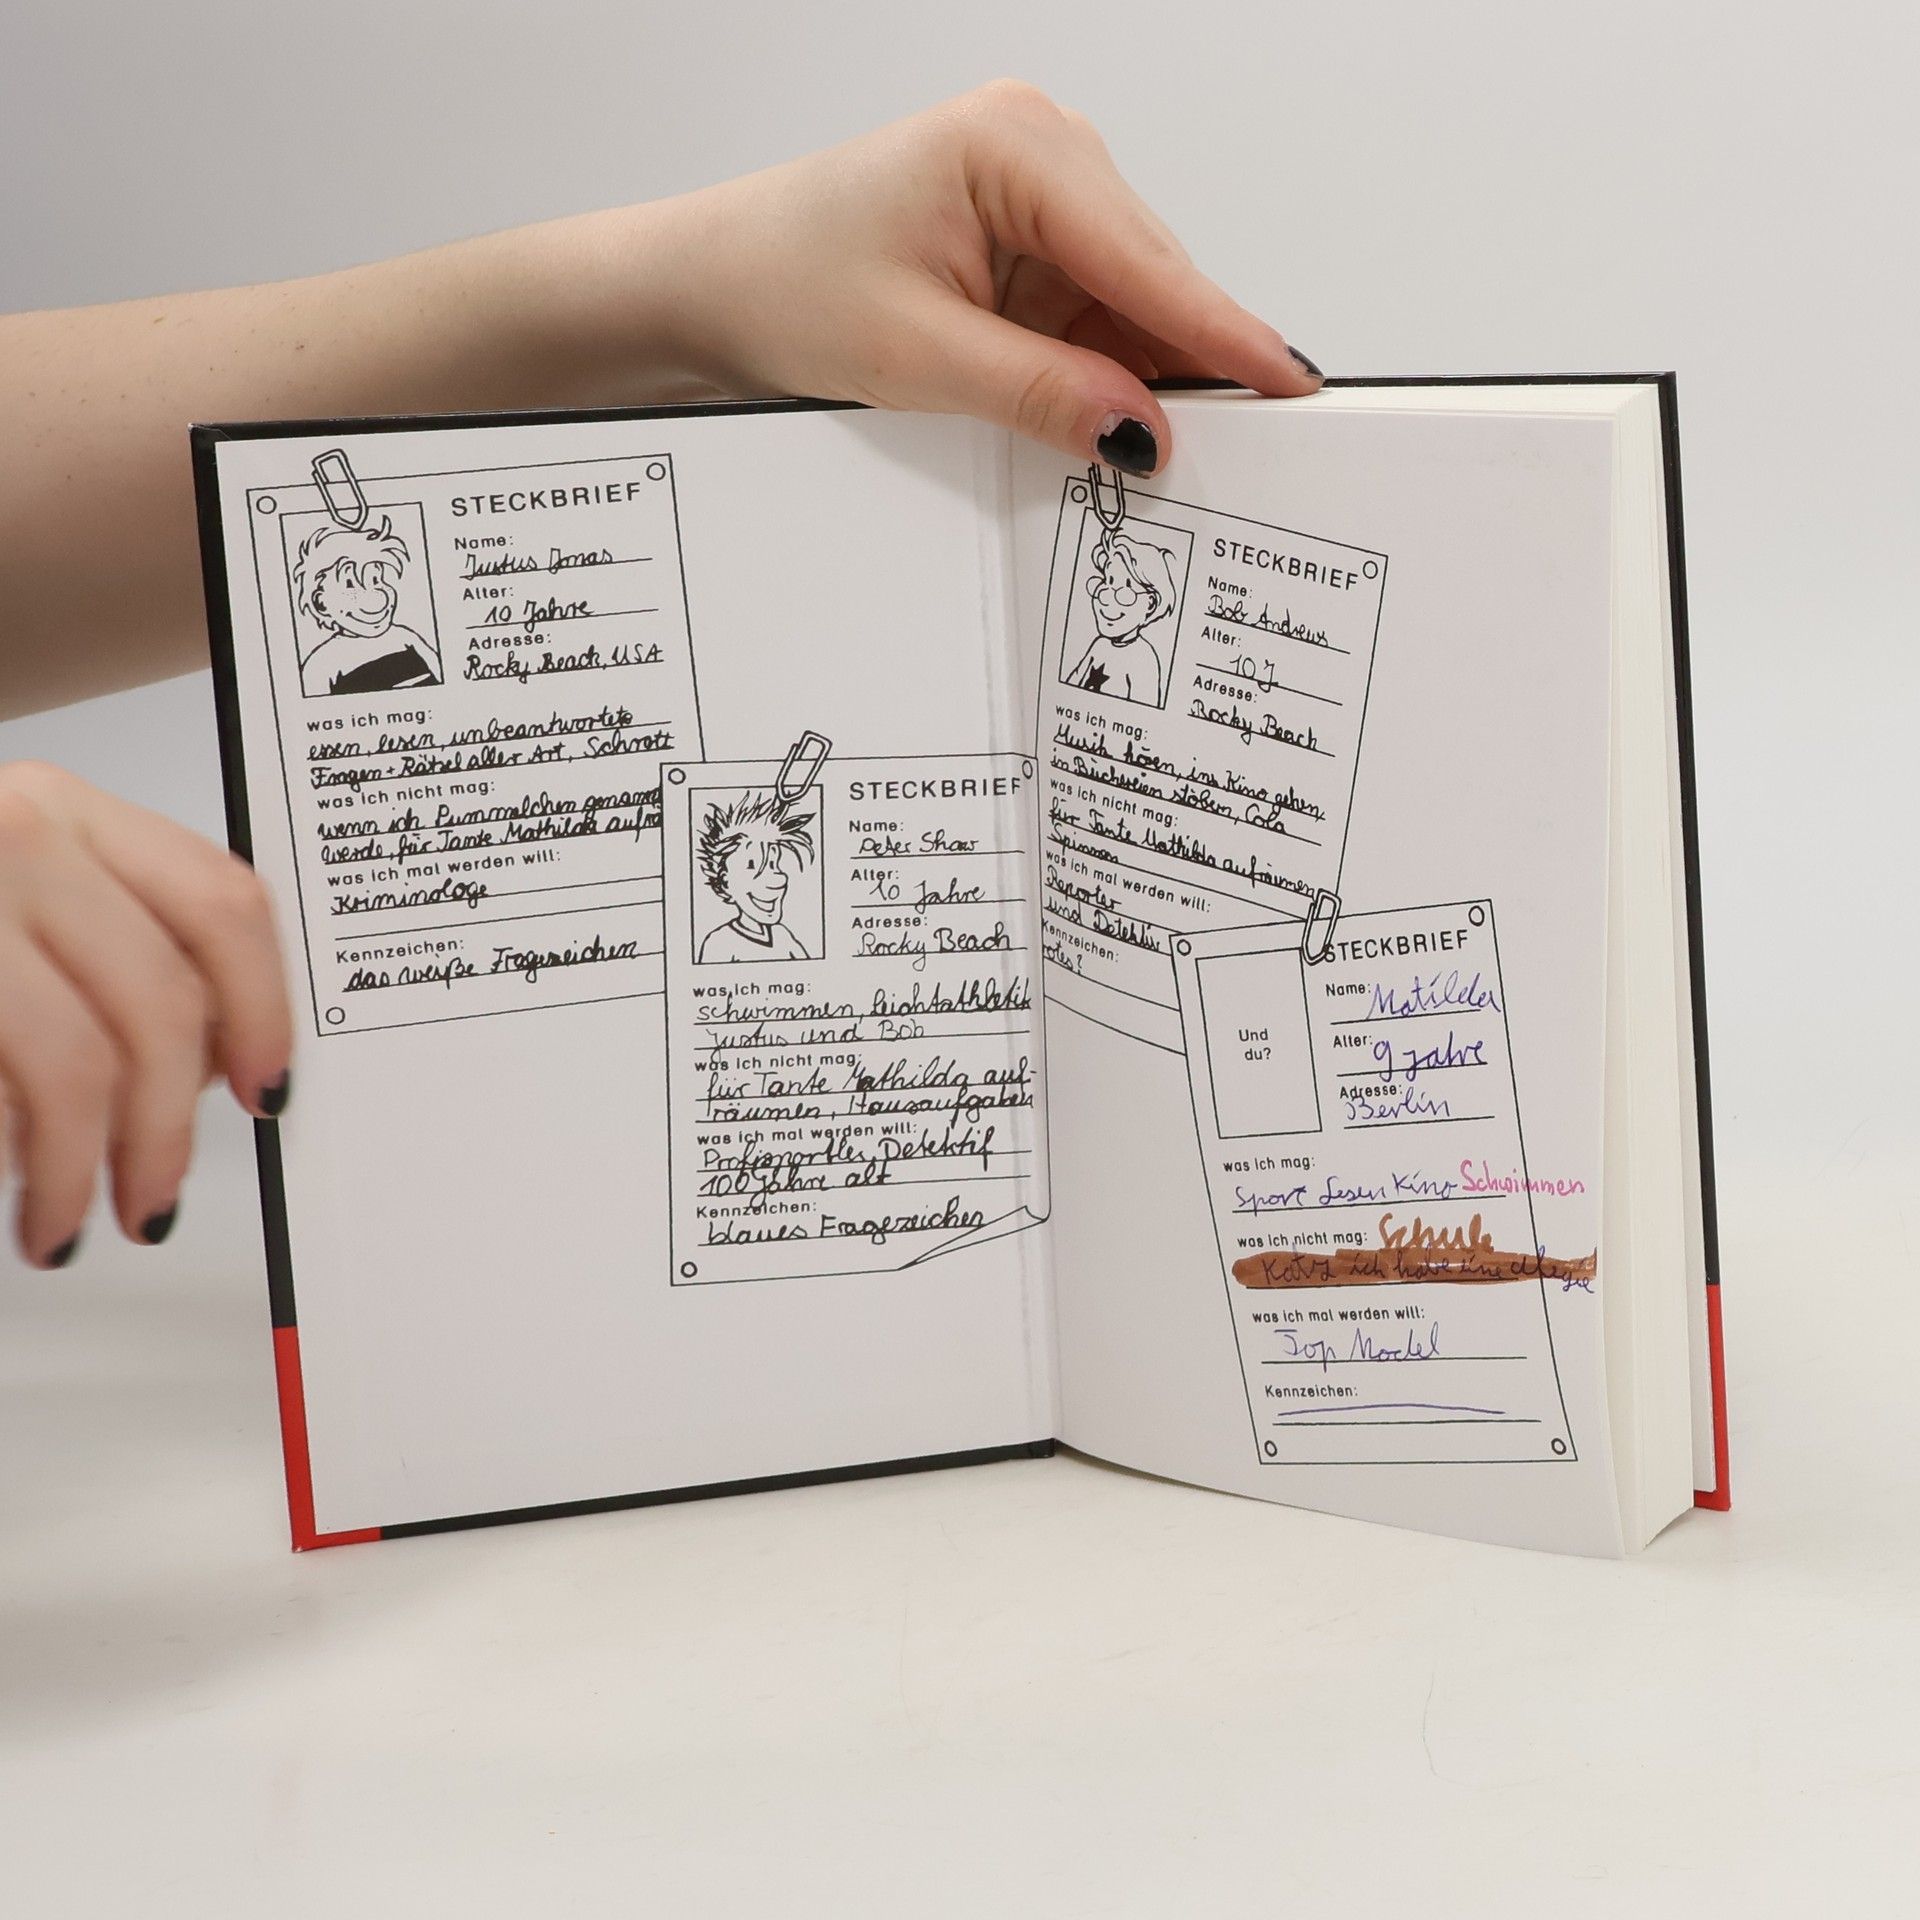 STECKBRIEF
Name:
Justus Jonas
Alter:
10 Jahre
Adresse:
Rocky Beach, USA
was ich mag:
essen, lesen, unbeantwortete
Fragen + Rätsel aller Art, Schrott
was ich nicht mag:
wenn ich Pummelchen genannt
werde, für Tante Mathilda aufrä
was ich mal werden will:
Kriminologe
Kennzeichen:
das weiße Fragezeichen
STECKBRIEF
Name:
Peter Shaw
Alter:
10 Jahre
Adresse:
Rocky Beach
was ich mag:
schwimmen, Leichtathletik
Justus und Bob
was ich nicht mag:
für Tante Mathilda auf-
räumen, Hausaufgaben
was ich mal werden will:
Profisportler, Detektif
100 Jahre alt
Kennzeichen:
blaues Fragezeichen
STECKBRIEF
Name:
Bob Andrews
Alter:
10 J
Adresse:
Rocky Beach
was ich mag:
Musik hören, ins Kino gehen,
in Büchereien stöbern, Cola
was ich nicht mag:
für Tante Mathilda aufräumen
Spinnen
was ich mal werden will:
Reporter
und Detektiv
Kennzeichen:
rotes?
STECKBRIEF
Und
du?
Name: Matilda
Alter: 9 Jahre
Adresse:
Berlin
was ich mag:
Sport Lesen Kino Schwimmen
was ich nicht mag: Schule
Katz ich habe eine alegie
was ich mal werden will:
Top Model
Kennzeichen: